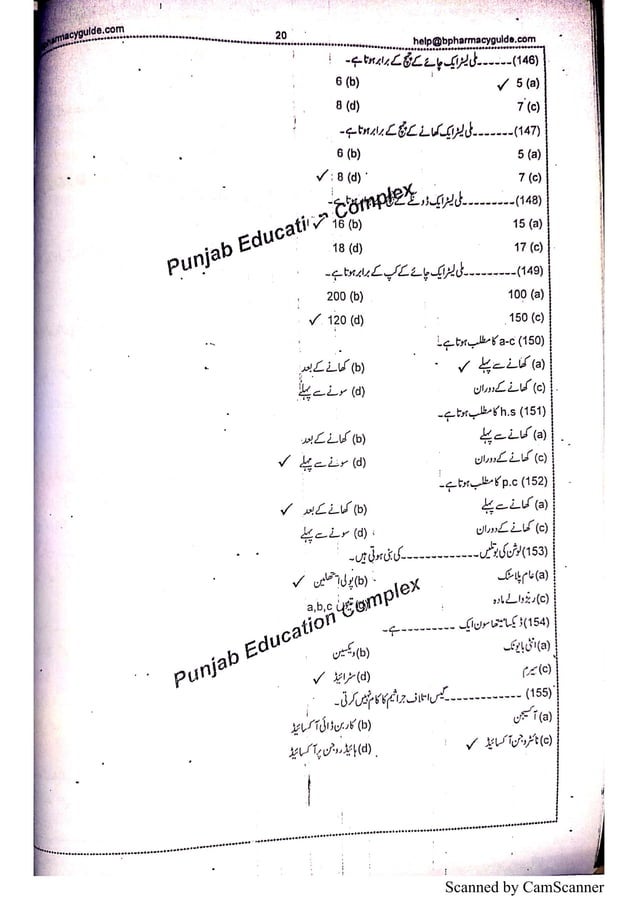 pharmacyguide.com 20 help@bpharmacyguide.com
(146)------ملی لیٹر ایک چائے کے چمچ کے برابر ہوتا ہے۔
(a) 5 ✓ (b) 6
(c) 7 (d) 8
(147)-------ملی لیٹر ایک کھانے کے چمچ کے برابر ہوتا ہے۔
(a) 5 (b) 6
(c) 7 (d) 8 ✓
(148)---------ملی لیٹر ایک ڈوئے کے ہوتا ہے۔
(a) 15 (b) 16 ✓
(c) 17 (d) 18
Punjab Education Complex
(149)---------ملی لیٹر ایک چائے کے کپ کے برابر ہوتا ہے۔
(a) 100 (b) 200
(c) 150 (d) 120 ✓
(150) a-c کا مطلب ہوتا ہے۔
(a) کھانے سے پہلے ✓ (b) کھانے کے بعد
(c) کھانے کے دوران (d) سونے سے پہلے
(151) h.s کا مطلب ہوتا ہے۔
(a) کھانے سے پہلے (b) کھانے کے بعد
(c) کھانے کے دوران (d) سونے سے پہلے ✓
(152) p.c کا مطلب ہوتا ہے۔
(a) کھانے سے پہلے (b) کھانے کے بعد ✓
(c) کھانے کے دوران (d) سونے سے پہلے
(153) لوشن کی بوتلیں----------کی بنی ہوتی ہیں۔
(a) عام پلاسٹک (b) پولی ایتھلین ✓
(c) ربڑ والے مادہ (d) a,b,c
Punjab Education Complex
(154) ڈیکسا میتھاسون ایک --------ہے۔
(a) انٹی بائیوٹک (b) ویکسین
(c) سیرم (d) سٹرائیڈ ✓
(155) ----------گیس اتلاف جراثیم کا کام نہیں کرتی۔
(a) آکسیجن (b) کاربن ڈائی آکسائیڈ
(c) نائٹروجن آکسائیڈ ✓ (d) ہائیڈروجن پر آکسائیڈ
Scanned by CamScanner